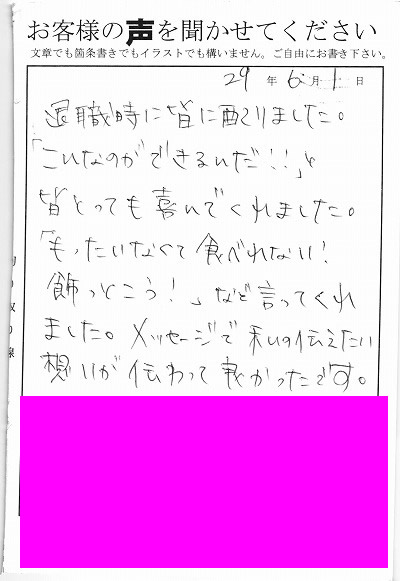 お客様の声を聞かせてください
文章でも箇条書きでもイラストでも構いません。ご自由にお書き下さい。
29年6月1日
退職時に皆に配りました。
「こんなのができるんだ!!」と
皆とっても喜んでくれました。
「もったいなくて食べれない!
飾っとこう!」など言ってくれ
ました。メッセージで私の伝えたい
想いが伝わって良かったです。